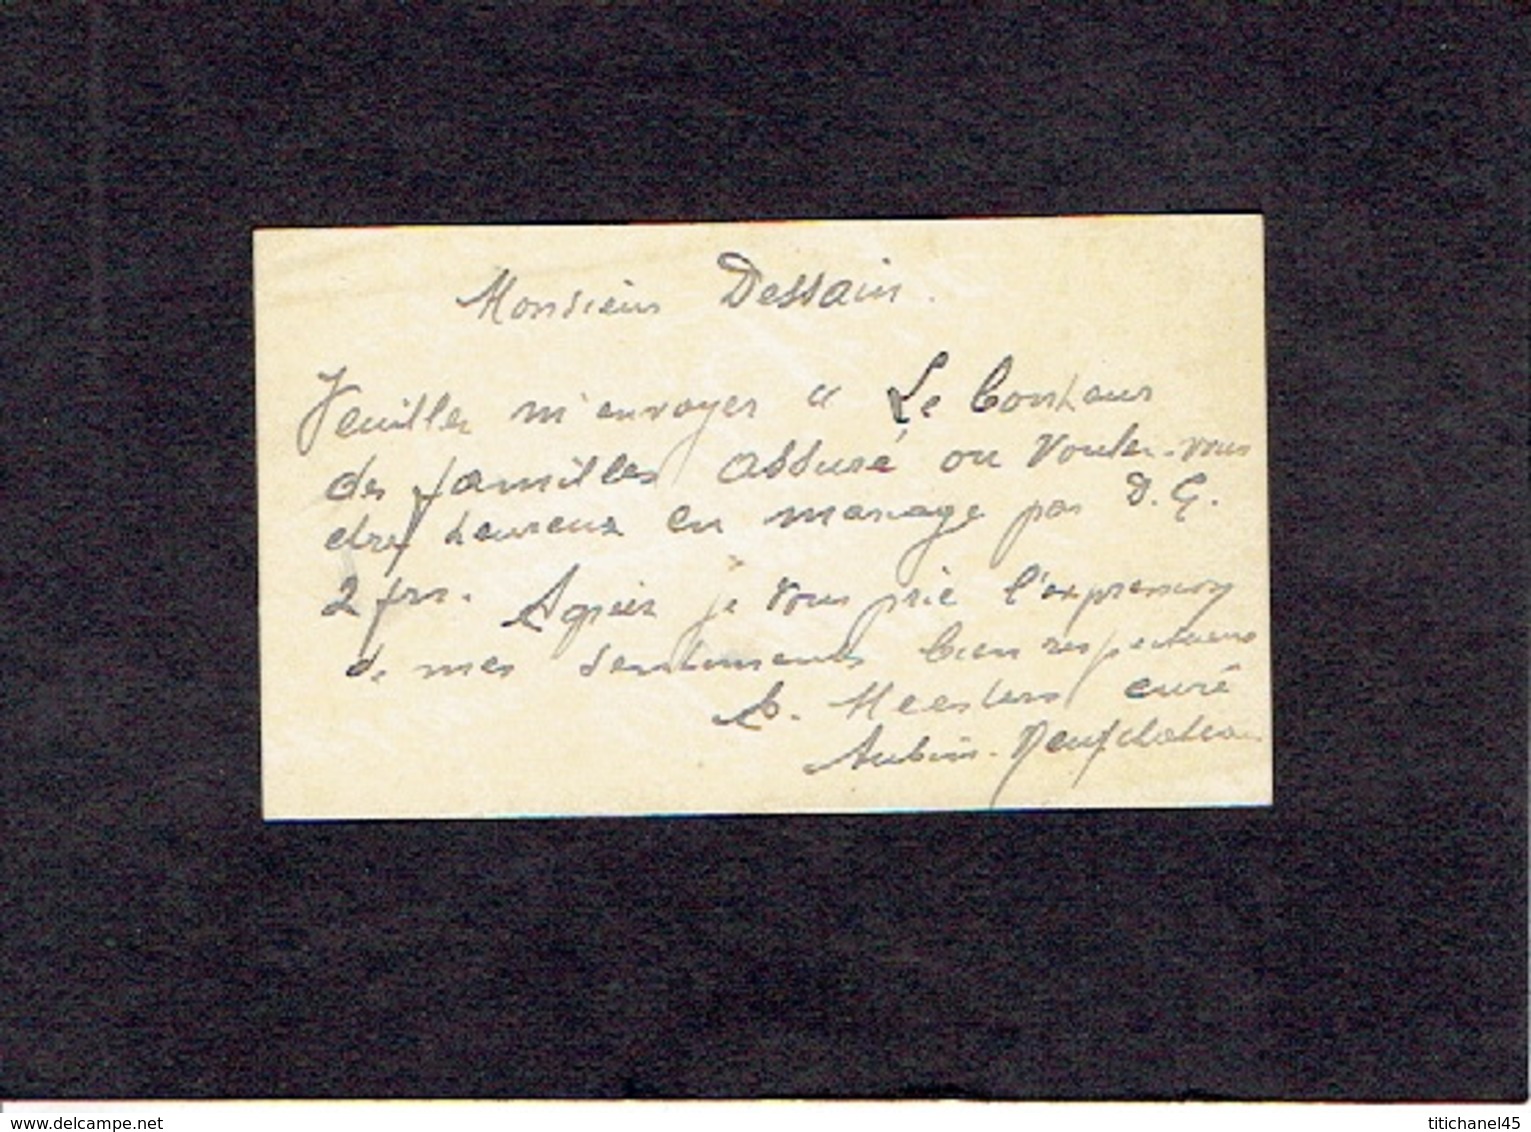 Monsieur Dessain.
Veuillez m'envoyer " Le bonheur
des familles assuré ou Voulez-vous
etre heureux en mariage par D. G.
2 frs. Agréez je vous prie l'expression
de mes sentiments bien respectueux
Meesters curé
Aubin-Neufchateau
www.delcampe.net
titichanel45